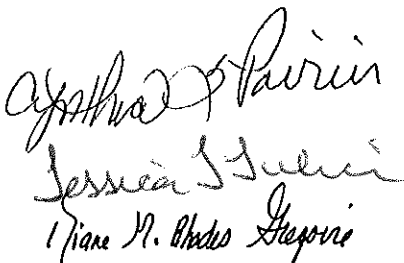 Cynthia J Poirier
Jessica L
Diane M. Rhodes Gregoire